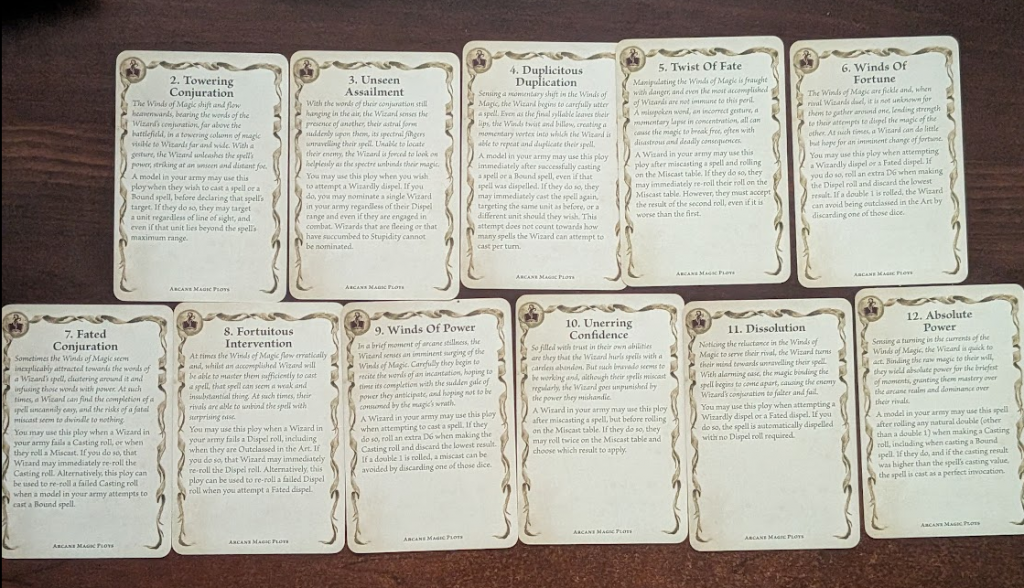 2. Towering
Conjuration
The Winds of Magic shift and flow
heavenwards, bearing the words of the
Wizard's conjuration, far above the
battlefield, in a towering column of magic
visible to Wizards far and wide. With a
gesture, the Wizard unleashes the spell's
power, striking at an unseen and distant foe.
A model in your army may use this
ploy when they wish to cast a spell or a
Bound spell, before declaring that spell's
target. If they do so, they may target
a unit regardless of line of sight, and
even if that unit lies beyond the spell's
maximum range.
Arcane Magic Ploys
3. Unseen
Assailment
With the words of their conjuration still
hanging in the air, the Wizard senses the
presence of another, their astral form
suddenly upon them, its spectral fingers
unravelling their spell. Unable to locate
their enemy, the Wizard is forced to look on
helplessly as the spectre unbinds their magic.
You may use this ploy when you wish
to attempt a Wizardly dispel. If you
do, you may nominate a single Wizard
in your army regardless of their Dispel
range and even if they are engaged in
combat. Wizards that are fleeing or that
have succumbed to Stupidity cannot
be nominated.
Arcane Magic Ploys
4. Duplicitous
Duplication
Sensing a momentary shift in the Winds of
Magic, the Wizard begins to carefully utter
a spell. Even as the final syllable leaves their
lips, the Winds twist and billow, creating a
momentary vortex into which the Wizard is
able to repeat and duplicate their spell.
A model in your army may use this ploy
immediately after successfully casting
a spell or a Bound spell, even if that
spell was dispelled. If they do so, they
may immediately cast the spell again,
targeting the same unit as before, or a
different unit should they wish. This
attempt does not count towards how
many spells the Wizard can attempt to
cast per turn.
Arcane Magic Ploys
5. Twist Of Fate
Manipulating the Winds of Magic is fraught
with danger, and even the most accomplished
of Wizards are not immune to this peril.
A misspoken word, an incorrect gesture, a
momentary lapse in concentration, all can
cause the magic to break free, often with
disastrous and deadly consequences.
A Wizard in your army may use this
ploy after miscasting a spell and rolling
on the Miscast table. If they do so, they
may immediately re-roll their roll on the
Miscast table. However, they must accept
the result of the second roll, even if it is
worse than the first.
Arcane Magic Ploys
6. Winds Of
Fortune
The Winds of Magic are fickle and, when
rival Wizards duel, it is not unknown for
them to gather around one, lending strength
to their attempts to dispel the magic of the
other. At such times, a Wizard can do little
but hope for an imminent change of fortune.
You may use this ploy when attempting
a Wizardly dispel or a Fated dispel. If
you do so, roll an extra D6 when making
the Dispel roll and discard the lowest
result. If a double 1 is rolled, the Wizard
can avoid being outclassed in the Art by
discarding one of those dice.
Arcane Magic Ploys
7. Fated
Conjuration
Sometimes the Winds of Magic seem
inexplicably attracted towards the words of
a Wizard's spell, clustering around it and
infusing those words with power. At such
times, a Wizard can find the completion of a
spell uncannily easy, and the risks of a fatal
miscast seem to dwindle to nothing.
You may use this ploy when a Wizard in
your army fails a Casting roll, or when
they roll a Miscast. If you do so, that
Wizard may immediately re-roll the
Casting roll. Alternatively, this ploy can
be used to re-roll a failed Casting roll
when a model in your army attempts to
cast a Bound spell.
Arcane Magic Ploys
8. Fortuitous
Intervention
At times the Winds of Magic flow erratically
and, whilst an accomplished Wizard will
be able to master them sufficiently to cast
a spell, that spell can seem a weak and
insubstantial thing. At such times, their
rivals are able to unbind the spell with
surprising ease.
You may use this ploy when a Wizard in
your army fails a Dispel roll, including
when they are Outclassed in the Art. If
you do so, that Wizard may immediately
re-roll the Dispel roll. Alternatively, this
ploy can be used to re-roll a failed Dispel
roll when you attempt a Fated dispel.
Arcane Magic Ploys
9. Winds Of Power
In a brief moment of arcane stillness, the
Wizard senses an imminent surging of the
Winds of Magic. Carefully they begin to
recite the words of an incantation, hoping to
time its completion with the sudden gale of
power they anticipate, and hoping not to be
consumed by the magic's wrath.
A Wizard in your army may use this ploy
when attempting to cast a spell. If they
do so, roll an extra D6 when making the
Casting roll and discard the lowest result.
If a double 1 is rolled, a miscast can be
avoided by discarding one of those dice.
Arcane Magic Ploys
10. Unerring
Confidence
So filled with trust in their own abilities
are they that the Wizard hurls spells with a
careless abandon. But such bravado seems to
be working and, although their spells miscast
regularly, the Wizard goes unpunished by
the power they mishandle.
A Wizard in your army may use this ploy
after miscasting a spell, but before rolling
on the Miscast table. If they do so, they
may roll twice on the Miscast table and
choose which result to apply.
Arcane Magic Ploys
11. Dissolution
Noticing the reluctance in the Winds of
Magic to serve their rival, the Wizard turns
their mind towards unravelling their spell.
With alarming ease, the magic binding the
spell begins to come apart, causing the enemy
Wizard's conjuration to falter and fail.
You may use this ploy when attempting a
Wizardly dispel or a Fated dispel. If you
do so, the spell is automatically dispelled
with no Dispel roll required.
Arcane Magic Ploys
12. Absolute
Power
Sensing a turning in the currents of the
Winds of Magic, the Wizard is quick to
act. Binding the raw magic to their will,
they yield absolute power for the briefest
of moments, granting them mastery over
the arcane realm and dominance over
their rivals.
A model in your army may use this spell
after rolling any natural double (other
than a double 1) when making a Casting
roll, including when casting a Bound
spell. If they do, and if the casting result
was higher than the spell's casting value,
the spell is cast as a perfect invocation.
Arcane Magic Ploys